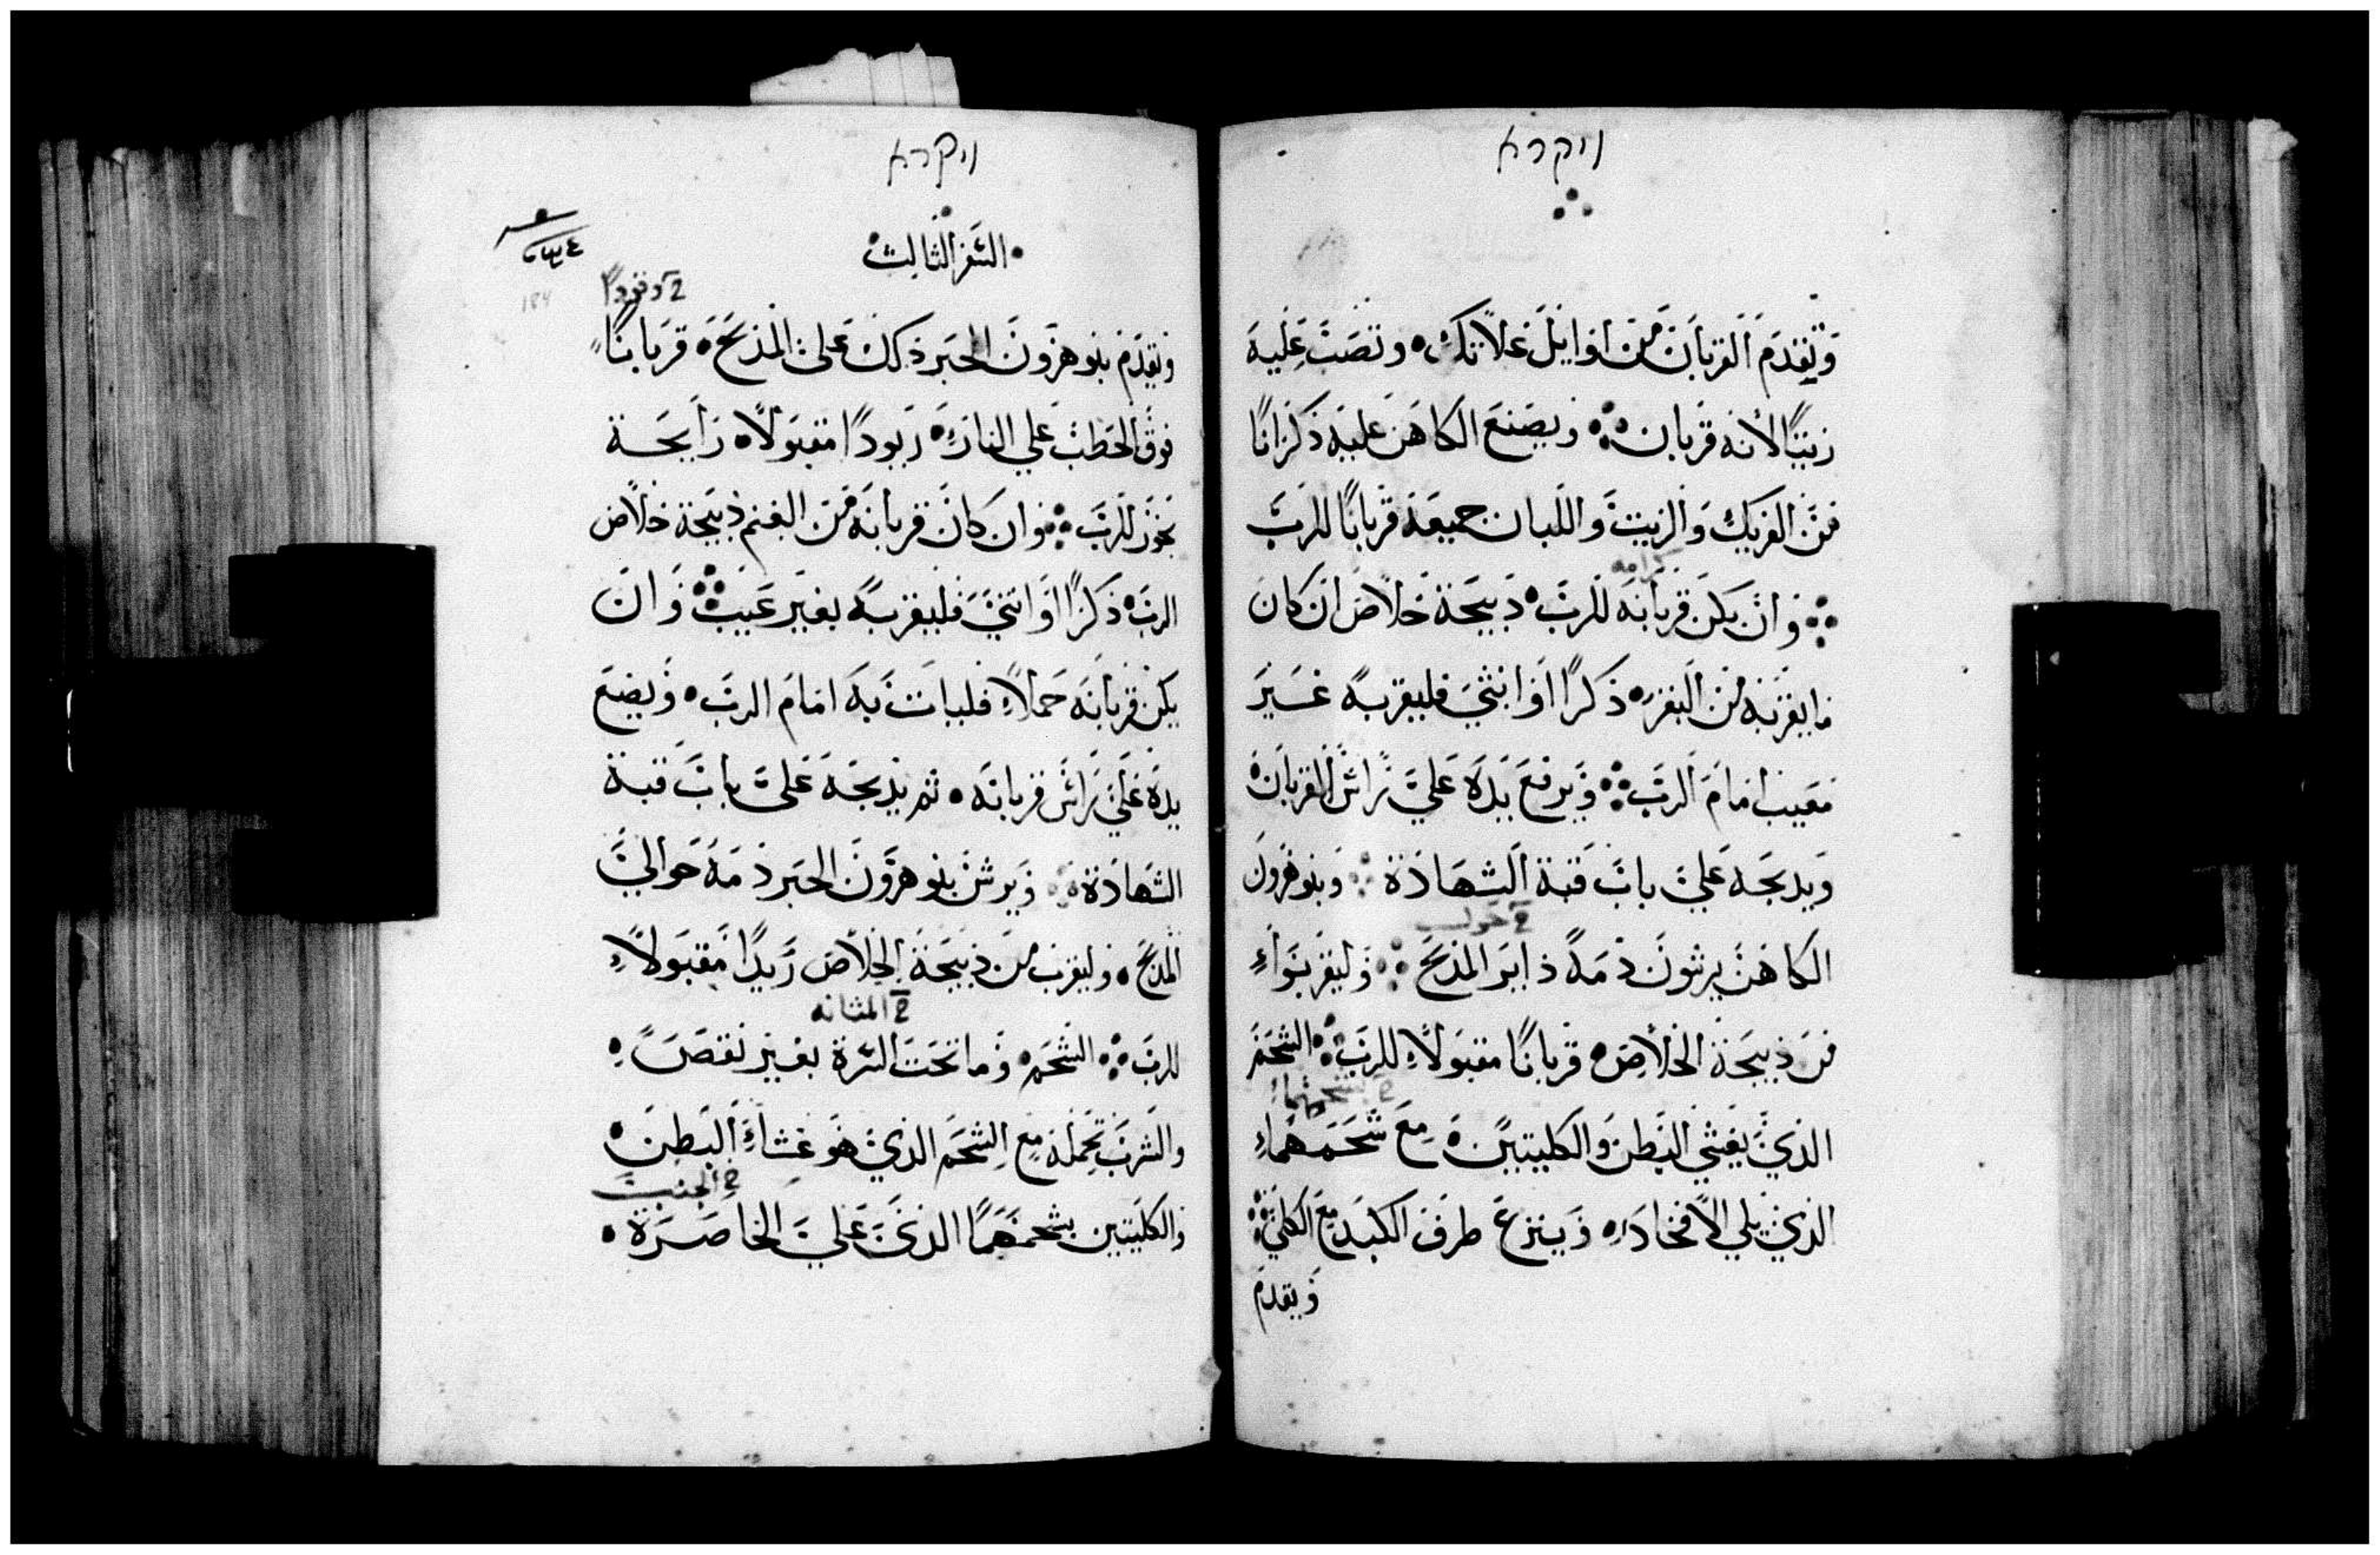 ויקרא
وتقدم القربان من اوايل غلاتك وتصب عليه
زيتا لانه قربان ويصنع الكاهن عليه ذكرانا
من الفريك والزيت واللبان جميعه قربانا للرب
كرامه
وان يكن قربانه للرب ذبيحة خلاص ان كان
ما يقربه من البقر ذكرا او انثي فليقربه غير
معيب امام الرب ويرفع يده علي راس القربان
ويدبحه علي باب قبة الشهادة وبنو هرون
2 حول
الكاهن يرشون دمه داير المذبح وليقربوا
من ذبيحة الخلاص قربانا مقبولا للرب الشحم
الذي يغشي البطن والكليتين مع شحمهما
الذي يلي الافخاد وينزع طرف الكبد مع الكلي
ويقدم
ויקרא
السفر الثالث
184
2 وقودا
ويقدم بنو هرون الحبر ذلك علي المذبح قربانا
فوق الحطب علي النار ربودا مقبولا رايحة
بخور للرب وان كان قربانه من الغنم ذبيحة خلاص
الرب ذكرا او انثي فليقربه بغير عيب وان
يكن قربانه حملا فليات به امام الرب ويضع
يده علي راس قربانه ثم يذبحه علي باب قبة
الشهادة ويرش بنو هرون الحبر دمه حوالي
المذبح وليقرب من ذبيحة الخلاص ربدا مقبولا
2 المثانه
للرب الشحم وما تحت السرة بغير نقص
والشرب تحمله مع الشحم الذي هو غشاء البطن
2 الجنب
والكليتين بشحمهما الذي علي الخاصرة